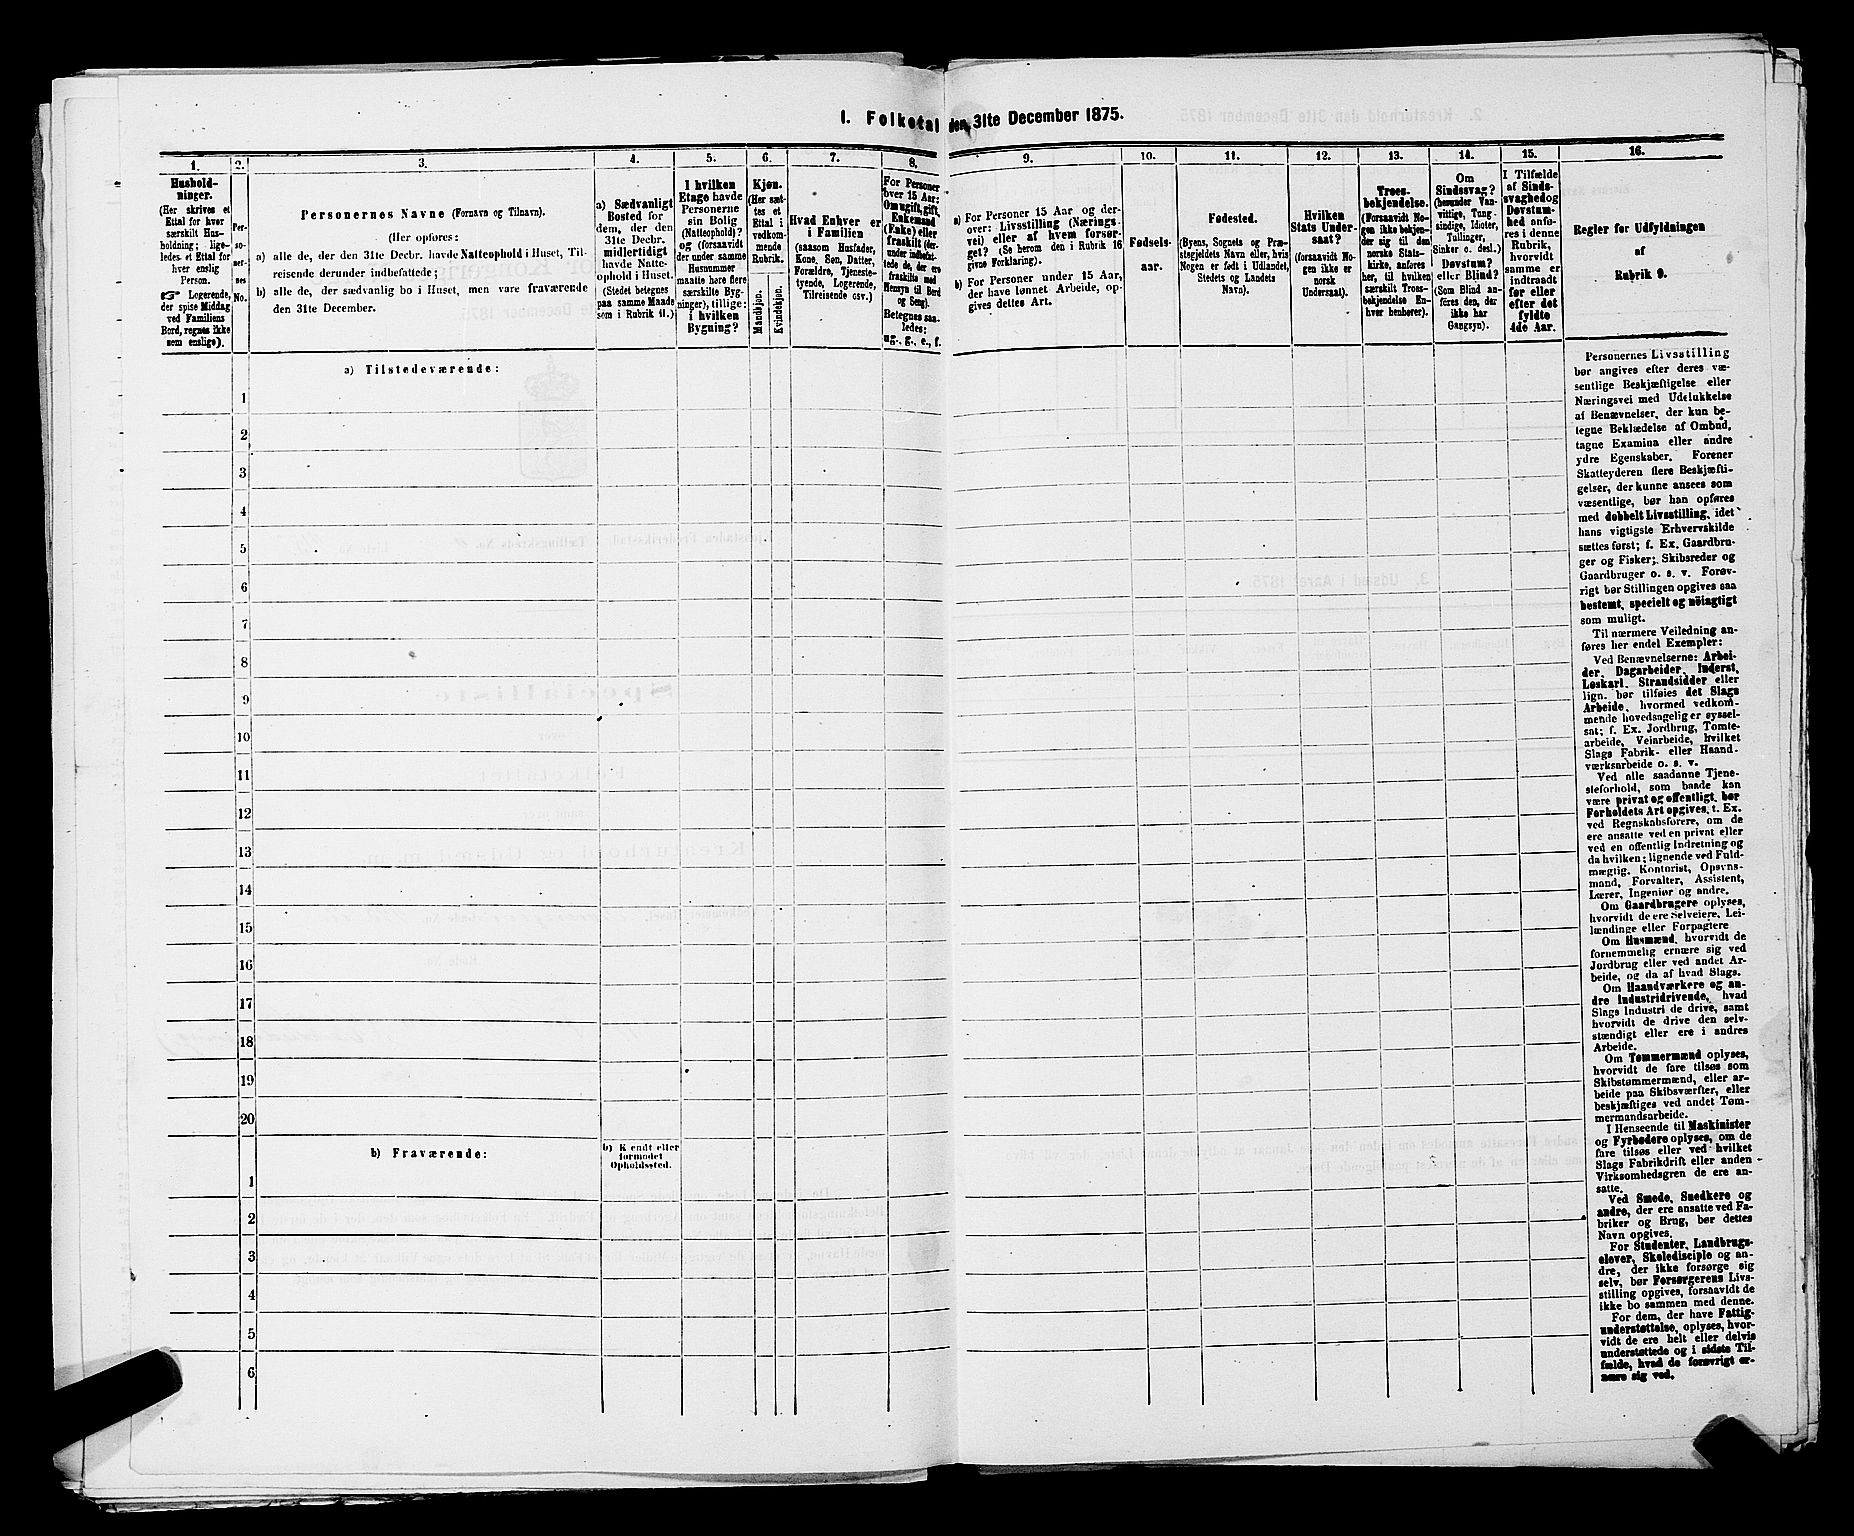 1. Folketal den 31te December 1875.
1.
Hushold-
ninger.
(Her skrives et
Ettal for hver
særskilt Hus-
holdning; lige-
ledes et Ettal for
hver enslig
Person.
☞ Logerende,
der spise Middag
ved Familiens
Bord, regnes ikke
som enslige).
2.
Per-
so-
ner-
nes
No.
3.
Personernes Navne (Fornavn og Tilnavn).
(Her opføres:
a) alle de, der den 31te Decbr. havde Natteophold i Huset, Til-
reisende derunder indbefattede;
b) alle de, der sædvanlig bo i Huset, men vare fraværende
den 31te December.
4.
a) Sædvanligt
Bosted for
dem, der den
31te Decbr.
midlertidigt
havde Natte-
ophold i Huset.
(Stedet betegnes
paa samme Maade
som i Rubrik 11.)
5.
I hvilken
Etage havde
Personerne
sin Bolig
(Natteophold)?
og (forsaavidt
der under samme
Husnummer
maatte høre flere
særskilte Byg-
ninger), tillige:
i hvilken
Bygning?
6.
Kjøn.
(Her sæt-
tes et
Ettal i
vedkom-
mende
Rubrik.
Mandkjøn.
Kvindekjøn.
7.
Hvad Enhver er
i Familien
(saasom Husfader,
Kone, Søn, Datter,
Forældre, Tjeneste-
tyende, Logerende,
Tilreisende osv.)
8.
For Personer
over 15 Aar:
Om ugift, gift,
Enkemand
(Enke) eller
fraskilt (der-
under indbefat-
tede de, der ere
fraskilte med
Hensyn til Bord
og Seng).
Betegnes saa-
ledes:
ug., g., e., f.
9.
a) For Personer 15 Aar og der-
over: Livsstilling (Nærings-
vei) eller af hvem forsør-
get? (Se herom den i Rubrik 16
givne Forklaring).
b) For Personer under 15 Aar,
der have lønnet Arbeide, op-
gives dettes Art.
10.
Fødsels-
aar.
11.
Fødested.
(Byens, Sognets og Præ-
stegjeldets Navn eller, hvis
Nogen er født i Udlandet,
Stedets og Landets
Navn).
12.
Hvilken
Stats Under-
saat?
(forsaavidt No-
gen ikke er
norsk
Undersaat).
13.
Troes-
bekjendelse.
(Forsaavidt No-
gen ikke bekjen-
der sig til den
norske Stats-
kirke, anføres
her, til hvilken
særskilt Troes-
bekjendelse En-
hver henhører).
14.
Om
Sindssvag?
(herunder Van-
vittige, Tung-
sindige, Idioter,
Tullinger,
Sinker o. desl.)
Døvstum?
eller Blind?
(Som Blind an-
føres den, der
ikke har
Gangsyn).
15.
I Tilfælde
af Sinds-
svaghed og
Døvstum-
hed anfø-
res i denne
Rubrik,
hvorvidt
samme er
indtraadt
før eller
efter det
fyldte
4de Aar.
16.
Regler for Udfyldningen
af
Rubrik 9.
a) Tilstedeværende:
1
2
3
4
5
6
7
8
9
10
11
12
13
14
15
16
17
18
19
20
b) Fraværende:
b) Kjendt eller
formodet
Opholdssted.
1
2
3
4
5
6
Personernes Livsstilling
bør angives efter deres væ-
sentlige Beskjæftigelse eller
Næringsvei med Udelukkelse
af Benævnelser, der kun be-
tegne Beklædelse af Ombud,
tagne Examina eller andre
ydre Egenskaber. Forener
Skatteyderen flere Beskjæfti-
gelser, der kunne ansees som
væsentlige, bør han opføres
med dobbelt Livsstilling, idet
hans vigtigste Erhvervskilde
sættes først; f. Ex. Gaardbru-
ger og Fisker; Skibsreder og
Gaardbruger o. s. v. Forøv-
rigt bør Stillingen opgives saa
bestemt, specielt og nöiagtigt
som muligt.
Til nærmere Veiledning an-
føres her endel Exempler:
Ved Benævnelserne: Arbei-
der, Dagarbeider, Inderst,
Løskarl, Strandsidder eller
lign. bør tilføies det Slags
Arbeide, hvormed vedkom-
mende hovedsagelig er syssel-
sat; f. Ex. Jordbrug, Tomte-
arbeide, Veiarbeide, hvilket
Slags Fabrik- eller Haand-
værksarbeide o. s. v.
Ved alle saadanne Tjene-
steforhold, som baade kan
være privat og offentligt, bør
Forholdets Art opgives, t. Ex.
ved Regnskabsførere, om de
ere ansatte ved en privat eller
ved en offentlig Indretning og
da hvilken; lignende ved Fuld-
mægtig, Kontorist, Opsyns-
mand, Forvalter, Assistent,
Lærer, Ingeniør og andre.
Om Gaardbrugere oplyses,
hvorvidt de ere Selveiere, Lei-
lændinge eller Forpagtere
Om Husmænd, hvorvidt de
fornemmelig ernære sig ved
Jordbrug eller ved andet Ar-
beide, og da af hvad Slags.
Om Haandværkere og an-
dre Industridrivende, hvad
Slags Industri de drive, samt
hvorvidt de drive den selv-
stændigt eller ere i andres
Arbeide.
Om Tømmermænd oplyses,
hvorvidt de fare tilsøs som
Skibstømmermænd, eller ar-
beide paa Skibsværfter, eller
beskjæftiges ved andet Tøm-
mermandsarbeide.
I Henseende til Maskinister
og Fyrbødere oplyses, om de
fare tilsøs eller ved hvilket
Slags Fabrikdrift eller anden
Virksomhedsgren de ere an-
satte.
Ved Smede, Snedkere og
andre, der ere ansatte ved Fa-
briker og Brug, bør dettes
Navn opgives.
For Studenter, Landbrugs-
elever, Skoledisciple og an-
dre, der ikke forsørge sig
selv, bør Forsørgerens Livs-
stilling opgives, forsaavidt de
ikke bo sammen med denne.
For dem, der have Fattig-
understøttelse, oplyses, hvor-
vidt de ere helt eller delvis
understøttede og i sidste Til-
fælde, hvad de forøvrigt er-
nære sig ved.